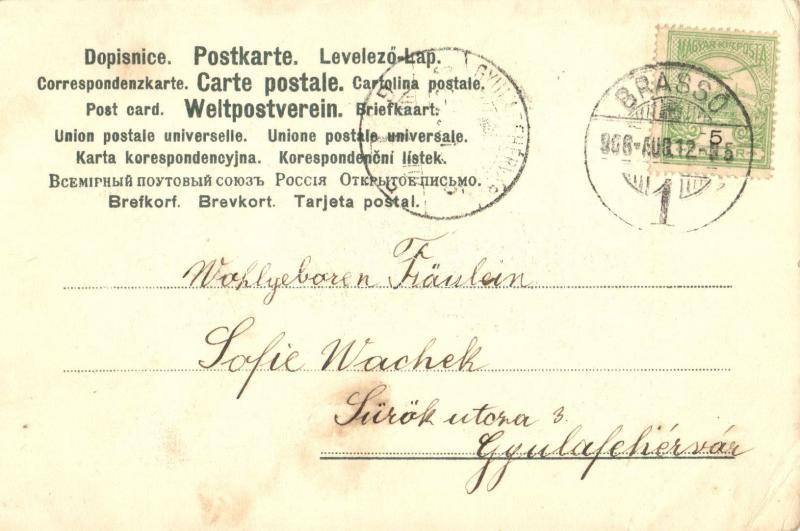 Dopisnice. Postkarte. Levelező-Lap.
Correspondenzkarte. Carte postale. Cartolina postale.
Post card. Weltpostverein. Briefkaart.
Union postale universelle. Unione postale universale.
Karta korespondencyjna. Korespondenční lístek.
Всемірный поутовый союзъ Россія Открытое письмо.
Brefkorf. Brevkort. Tarjeta postal.
MAGYAR KIR. POSTA
5
BRASSÓ
906-AUG.12-
1
Wohlgeboren Fräulein
Sofie Wachek
Sürök utcza 3.
Gyulafehérvár